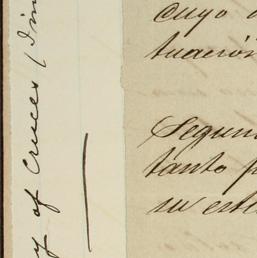 y of Cruces (
cuyo
tuación
Segun
tanto p
su est